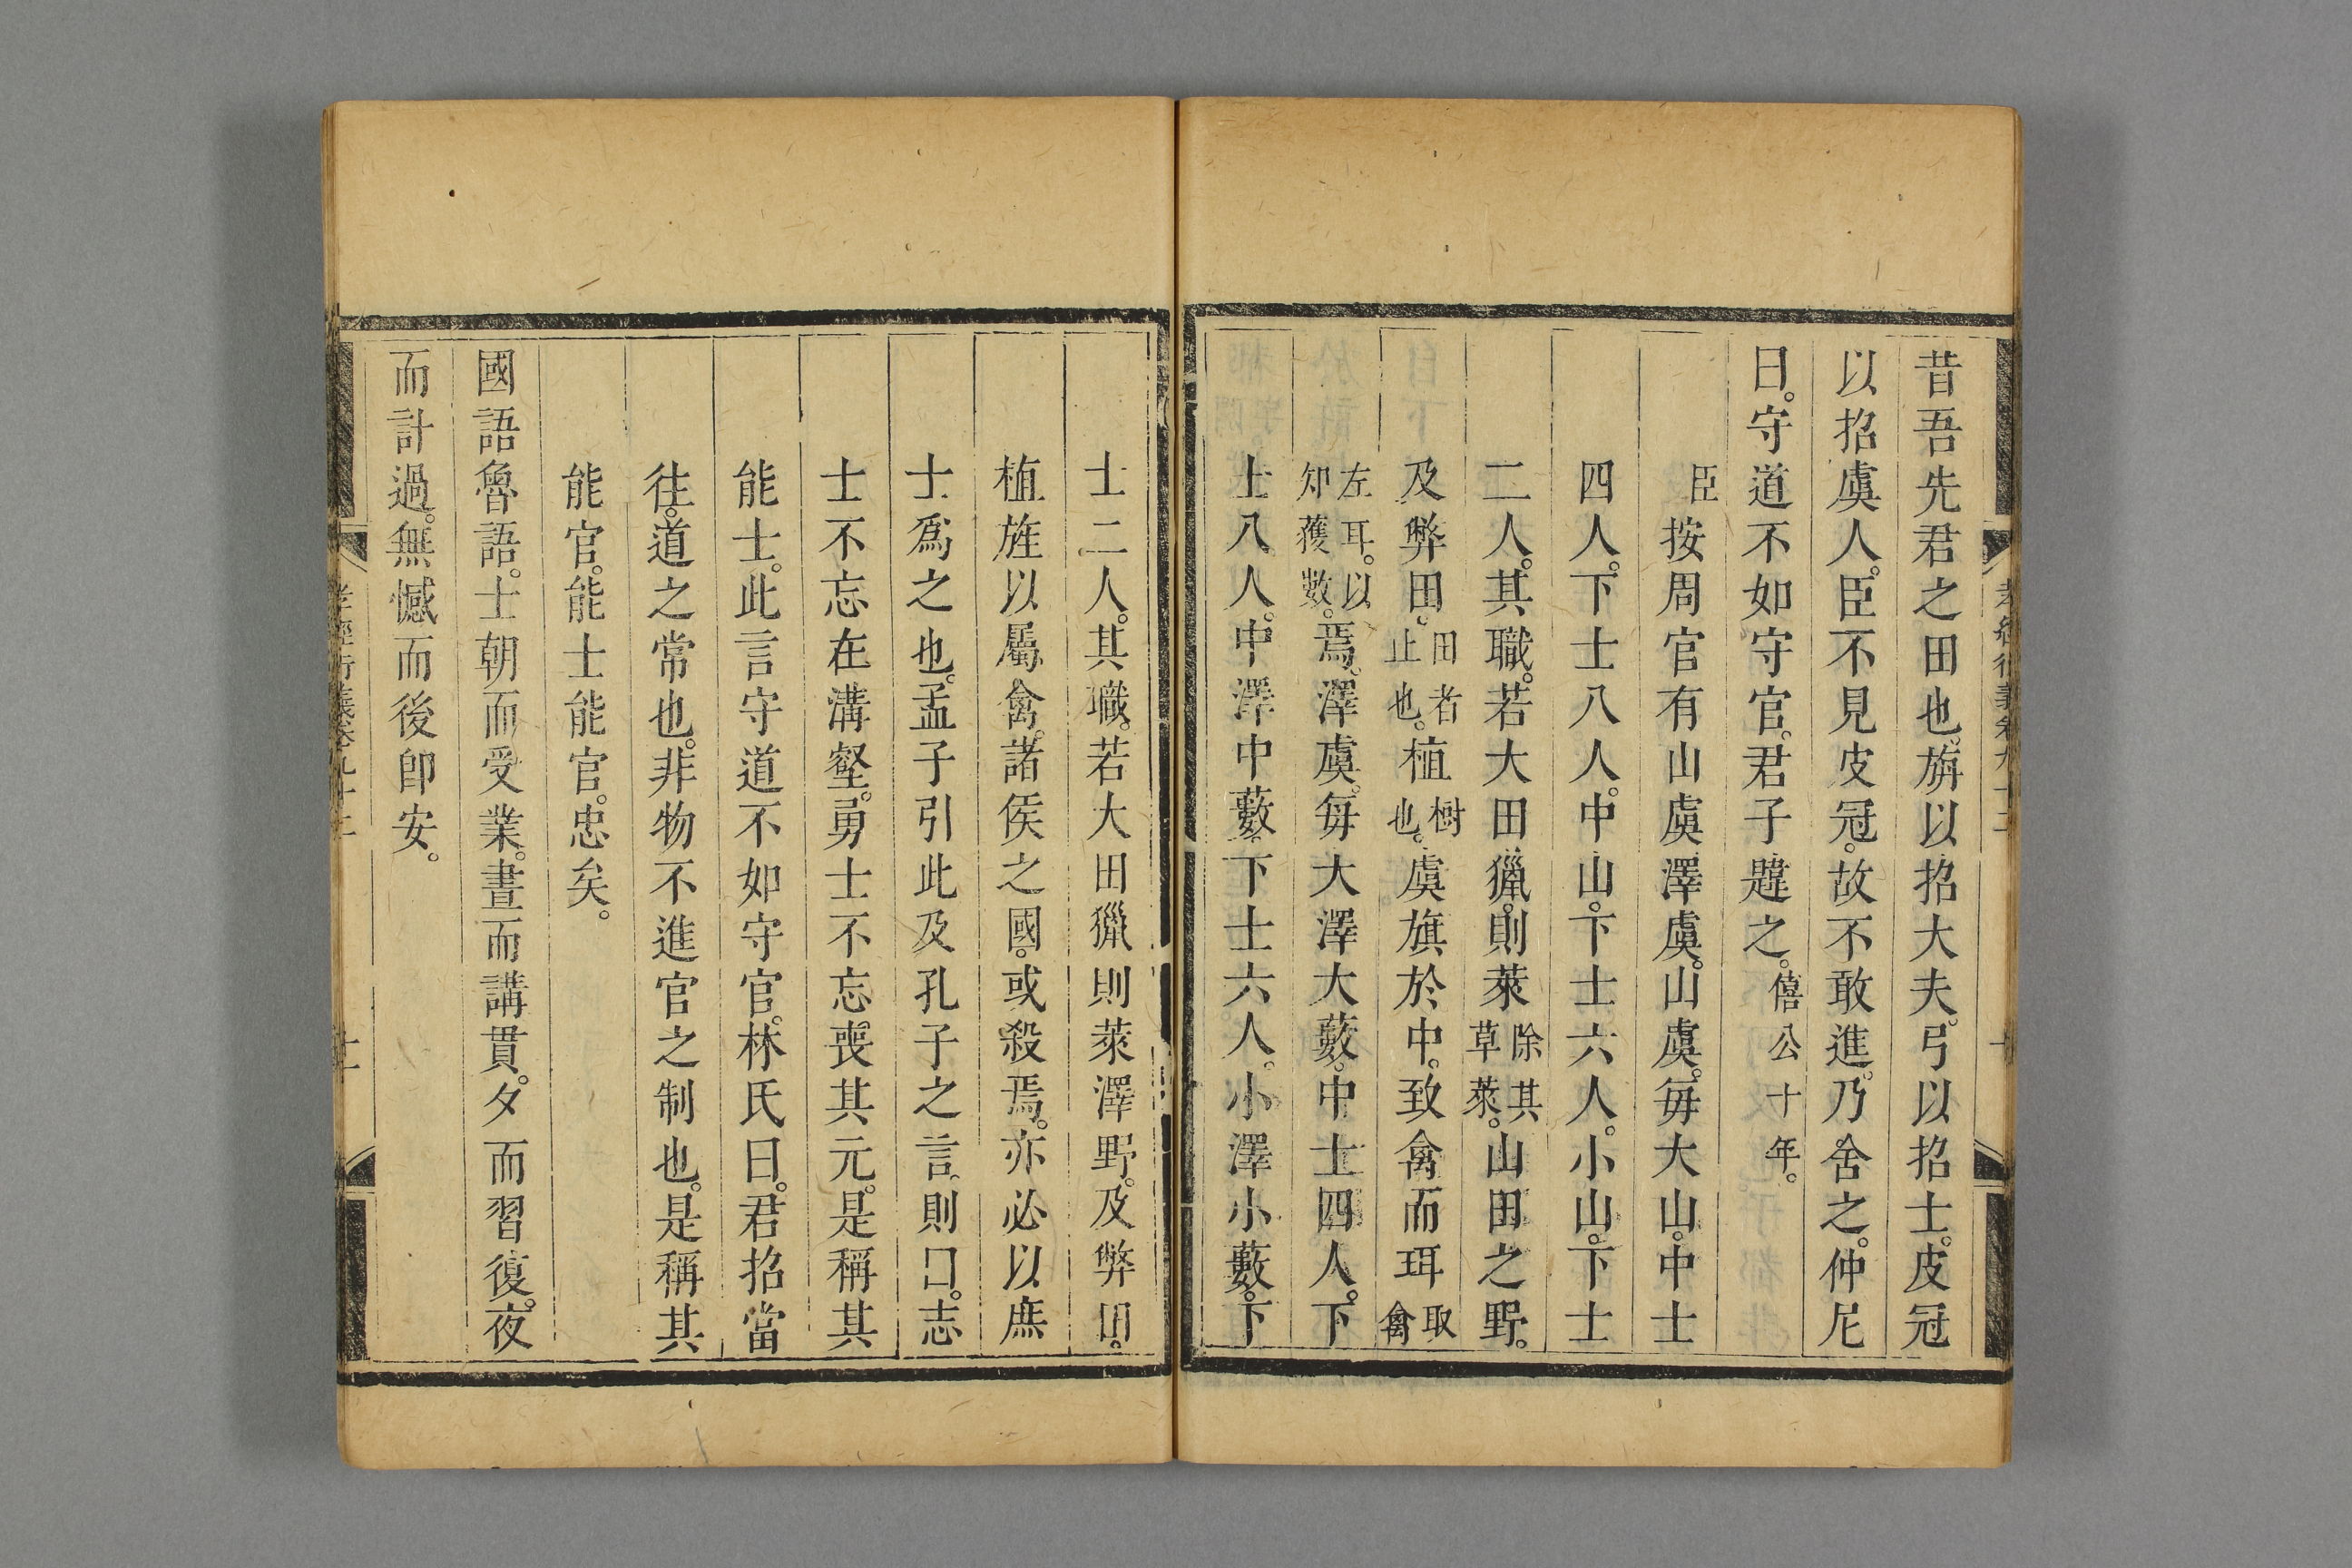 昔吾先君之田也。旃以招大夫。弓以招士。皮冠
以招虞人。臣不見皮冠。故不敢進。乃舍之。仲尼
曰。守道不如守官。君子韙之。僖公十年。
臣按周官有山虞澤虞。山虞。每大山。中士
四人。下士八人。中山。下士六人。小山。下士
二人。其職。若大田獵。則萊除其草萊。山田之野。
及弊田。田者止也。植樹也。虞旗於中。致禽而珥取禽
左耳。以知獲數。焉。澤虞。每大澤大藪。中士四人。下
士八人。中澤中藪。下士六人。小澤小藪。下
士二人。其職。若大田獵則萊澤野。及弊田。
植旌以屬禽。諸侯之國。或殺焉。亦必以庶
士爲之也。孟子引此及孔子之言。則曰。志
士不忘在溝壑。勇士不忘喪其元。是稱其
能士。此言守道不如守官。林氏曰。君招當
往。道之常也。非物不進官之制也。是稱其
能官。能士能官。忠矣。
國語魯語。士朝而受業。晝而講貫。夕而習復。夜
而計過。無憾而後卽安。